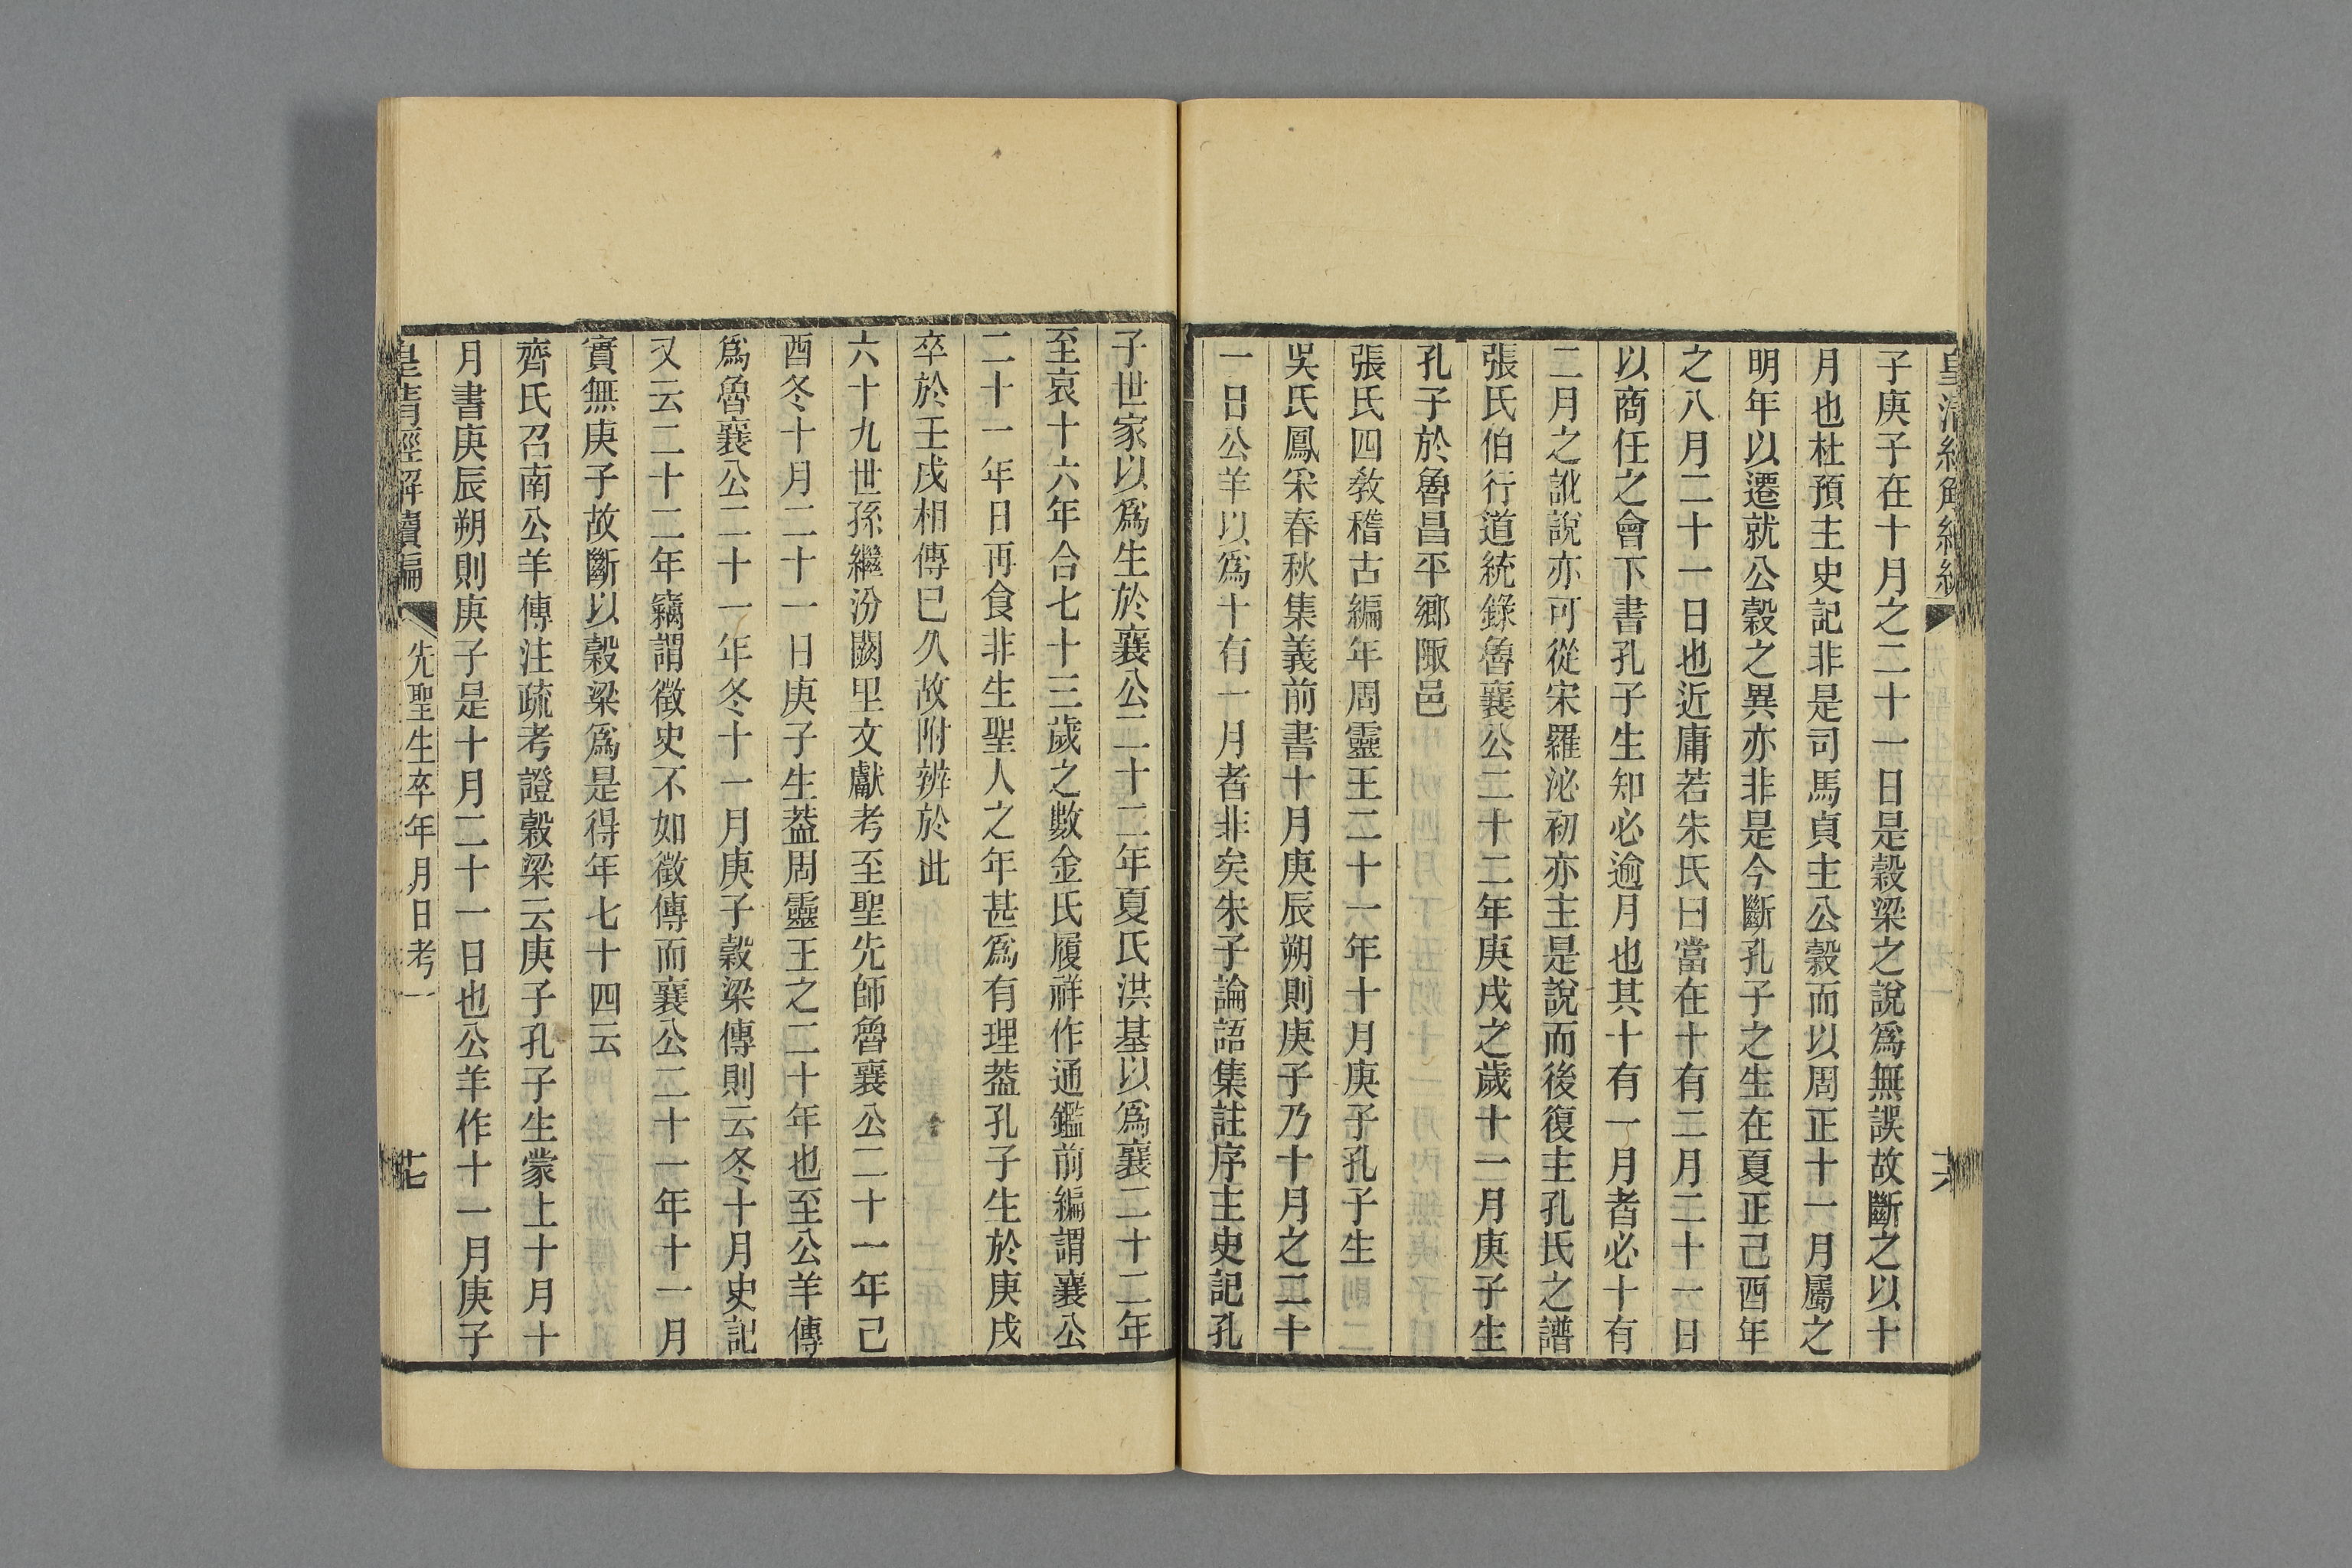 子庚子在十月之二十一日是穀梁之說爲無誤故斷之以十
月也杜預主史記非是司馬貞主公穀而以周正十一月屬之
明年以遷就公穀之異亦非是今斷孔子之生在夏正己酉年
之八月二十一日也近庸若朱氏曰當在十有二月二十一日
以商任之會下書孔子生知必逾月也其十有一月者必十有
二月之訛說亦可從宋羅泌初亦主是說而後復主孔氏之譜
張氏伯行道統錄魯襄公二十二年庚戌之歲十一月庚子生
孔子於魯昌平鄉陬邑
張氏四教稽古編年周靈王二十一年十月庚子孔子生
吳氏鳳來春秋集義前書十月庚辰朔則庚子乃十月之二十
一日公羊以爲十有一月者非矣朱子論語集註序主史記孔
子世家以爲生於襄公二十二年夏氏洪基以爲襄二十二年
至哀十六年合七十三歲之數金氏履祥作通鑑前編謂襄公
二十一年日再食非生聖人之年甚爲有理葢孔子生於庚戌
卒於壬戌相傳已久故附辨於此
六十九世孫繼汾闕里文獻考至聖先師魯襄公二十一年己
酉冬十月二十一日庚子生葢周靈王之二十年也至公羊傳
爲魯襄公二十一年冬十一月庚子穀梁傳則云冬十月史記
又云二十二年竊謂徵史不如徵傳而襄公二十一年十一月
實無庚子故斷以穀梁爲是得年七十四云
齊氏召南公羊傳注疏考證穀梁云庚子孔子生蒙上十月十
月書庚辰朔則庚子是十月二十一日也公羊作十一月庚子
皇清經解續編
先聖生卒年月日考一